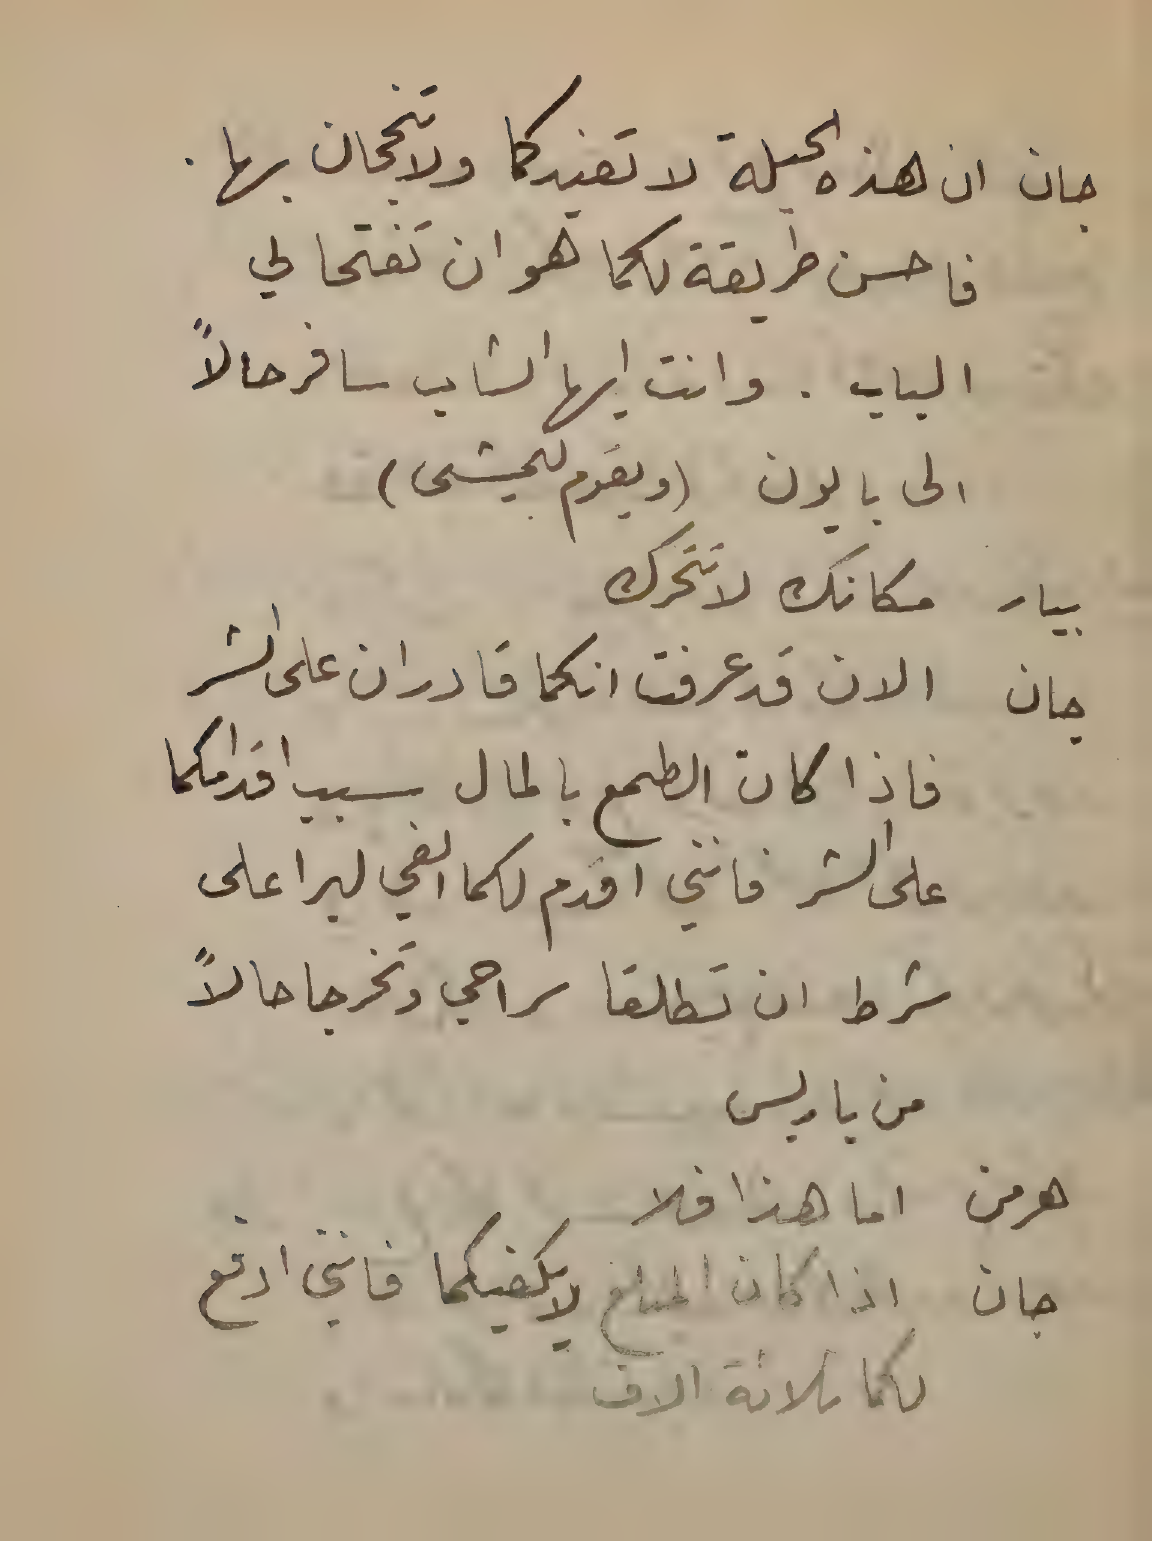 جان ان هذه الحيلة لا تفيدكما ولا تنجحان بها .
فاحسن طريقة لكما هو ان تفتحا لي
الباب . وانت ايها الشاب سافر حالاً
الى بايون (ويقوم ليمشى)
بيار مكانك لا تتحرك
جان الان قد عرفت انكما قادران على الشر
فاذا كان الطمع بالمال سبب اقدامكما
على الشر فانني اقدم لكما الفي ليرا على
شرط ان تطلقا سراحي وتخرجا حالاً
من باريس
هرمن اما هذا فلا
جان اذا كان المبلغ لا يكفيكما فانني ادفع
لكما ثلاثة الاف